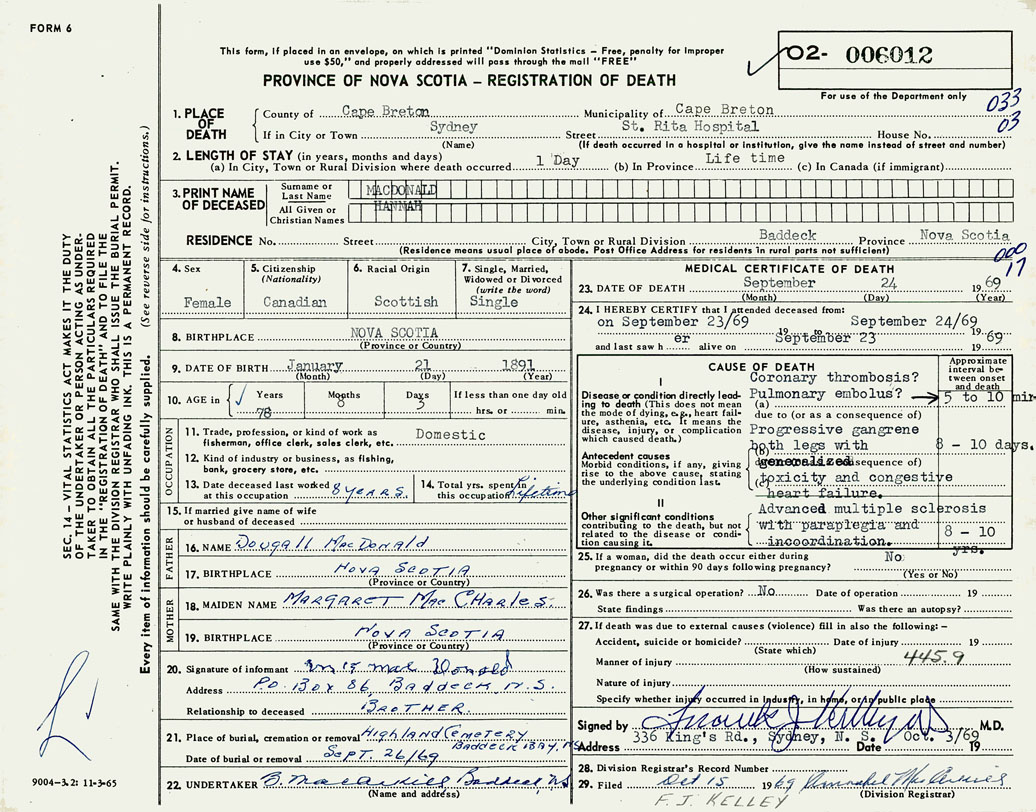 FORM 6
This form, if placed in an envelope, on which is printed "Dominion Statistics – Free, penalty for improper
use $50," and properly addressed will pass through the mail "FREE"
PROVINCE OF NOVA SCOTIA – REGISTRATION OF DEATH
02- 006012
For use of the Department only
033
03
SEC. 14 – VITAL STATISTICS ACT MAKES IT THE DUTY
OF THE UNDERTAKER OR PERSON ACTING AS UNDER-
TAKER TO OBTAIN ALL THE PARTICULARS REQUIRED
IN THE "REGISTRATION OF DEATH" AND TO FILE THE
SAME WITH THE DIVISION REGISTRAR WHO SHALL ISSUE THE BURIAL PERMIT.
WRITE PLAINLY WITH UNFADING INK. THIS IS A PERMANENT RECORD.
Every item of information should be carefully supplied. (See reverse side for instructions.)
9004–3.2: 11-3-65
1. PLACE OF DEATH County of Cape Breton Municipality of Cape Breton
If in City or Town Sydney Street St. Rita Hospital House No.
(Name) (If death occurred in a hospital or institution, give the name instead of street and number)
2. LENGTH OF STAY (in years, months and days)
(a) In City, Town or Rural Division where death occurred 1 Day (b) In Province Life time (c) In Canada (if immigrant)
3. PRINT NAME OF DECEASED
Surname or Last Name MACDONALD
All Given or Christian Names HANNAH
RESIDENCE No. Street City, Town or Rural Division Baddeck Province Nova Scotia
(Residence means usual place of abode. Post Office Address for residents in rural parts not sufficient)
000
17
4. Sex
Female
5. Citizenship (Nationality)
Canadian
6. Racial Origin
Scottish
7. Single, Married, Widowed or Divorced (write the word)
Single
8. BIRTHPLACE NOVA SCOTIA
(Province or Country)
9. DATE OF BIRTH January 21 1891
(Month) (Day) (Year)
10. AGE in Years 78 Months 8 Days 3 If less than one day old
hrs. or min.
OCCUPATION
11. Trade, profession, or kind of work as
fisherman, office clerk, sales clerk, etc. Domestic
12. Kind of industry or business, as fishing,
bank, grocery store, etc.
13. Date deceased last worked at this occupation 8 YEARS.
14. Total yrs. spent in this occupation Lifetime
15. If married give name of wife
or husband of deceased
FATHER
16. NAME Dougall MacDonald
17. BIRTHPLACE Nova Scotia
(Province or Country)
MOTHER
18. MAIDEN NAME Margaret MacCharles
19. BIRTHPLACE Nova Scotia
(Province or Country)
20. Signature of informant MacDonald
Address P.O. Box 86, Baddeck N.S.
Relationship to deceased BROTHER.
21. Place of burial, cremation or removal Highland Cemetery
Baddeck Bay, NS
Date of burial or removal Sept. 26/69
22. UNDERTAKER Baddeck NS
(Name and address)
MEDICAL CERTIFICATE OF DEATH
23. DATE OF DEATH September 24 1969
(Month) (Day) (Year)
24. I HEREBY CERTIFY that I attended deceased from:
on September 23/69 19 to September 24/69
and last saw h er alive on September 23 1969
CAUSE OF DEATH
Approximate interval between onset and death
I
Disease or condition directly leading to death (This does not mean the mode of dying, e.g., heart failure, asthenia, etc. It means the disease, injury, or complication which caused death.)
Coronary thrombosis?
Pulmonary embolus? 5 to 10 min
(a)
due to (or as a consequence of)
Antecedent causes
Morbid conditions, if any, giving rise to the above cause, stating the underlying condition last.
Progressive gangrene
both legs with 8 - 10 days.
(b)
due to (or as a consequence of)
generalized
toxicity and congestive
(c)
heart failure.
II
Other significant conditions
contributing to the death, but not related to the disease or condition causing it.
Advanced multiple sclerosis
with paraplegia and 8 - 10
incoordination. yrs.
25. If a woman, did the death occur either during
pregnancy or within 90 days following pregnancy? No
(Yes or No)
26. Was there a surgical operation? No Date of operation 19
State findings Was there an autopsy?
27. If death was due to external causes (violence) fill in also the following: –
Accident, suicide or homicide? Date of injury 19
(State which)
Manner of injury 445.9
(How sustained)
Nature of injury
Specify whether injury occurred in Industry, in home, or in public place
Signed by Frank J Kelley M.D.
Address 336 King's Rd., Sydney, N. S. Date Oct. 3/69 19
28. Division Registrar's Record Number
29. Filed Oct 15 1969
(Division Registrar)
F. J. KELLEY